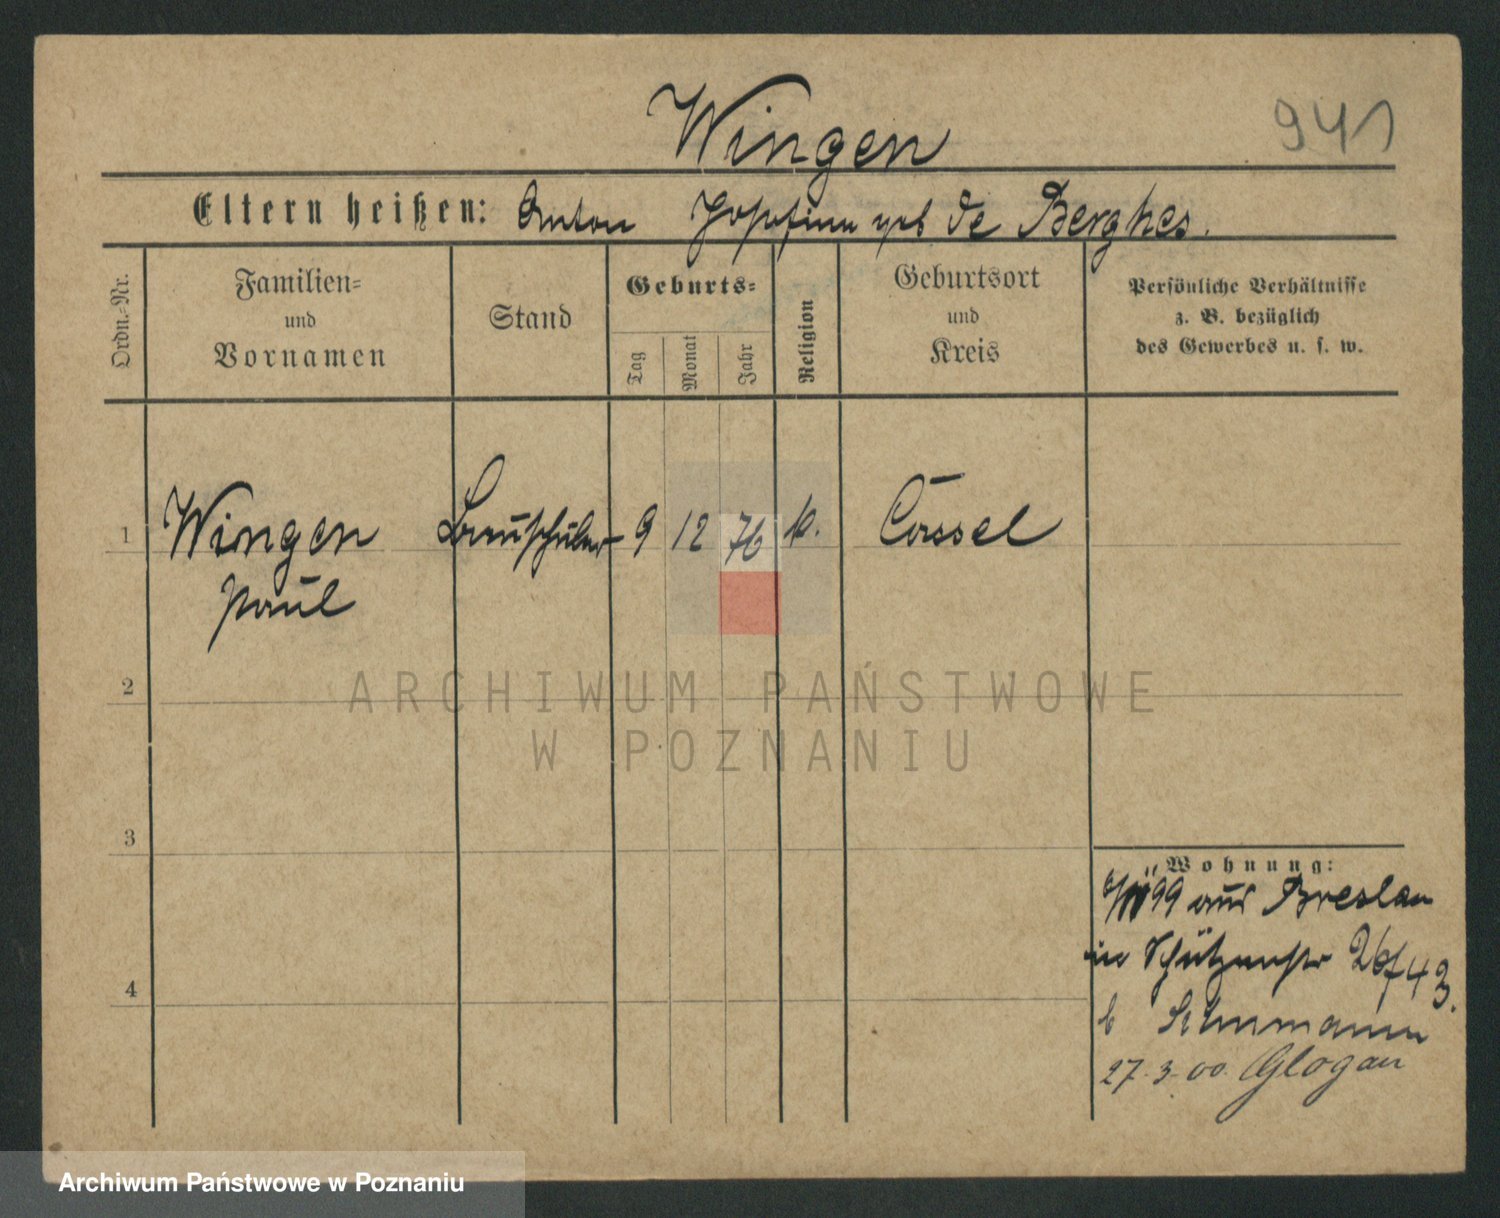 Wingen
941
Eltern heißen: Anton Josefine geb de Berghes.
Ordn.-Nr.
Familien=
und
Vornamen
Stand
Geburts=
Tag
Monat
Jahr
Religion
Geburtsort
und
Kreis
Persönliche Verhältnisse
z. B. bezüglich
des Gewerbes u. s. w.
1 Wingen Bauschüler 9 12 76 k. Cassel
Paul
2
3
4
Wohnung:
99 aus Breslau
in Schützenstr 26/43.
b Schumann
27.3.00. Glogau
ARCHIWUM PAŃSTWOWE
W POZNANIU
Archiwum Państwowe w Poznaniu